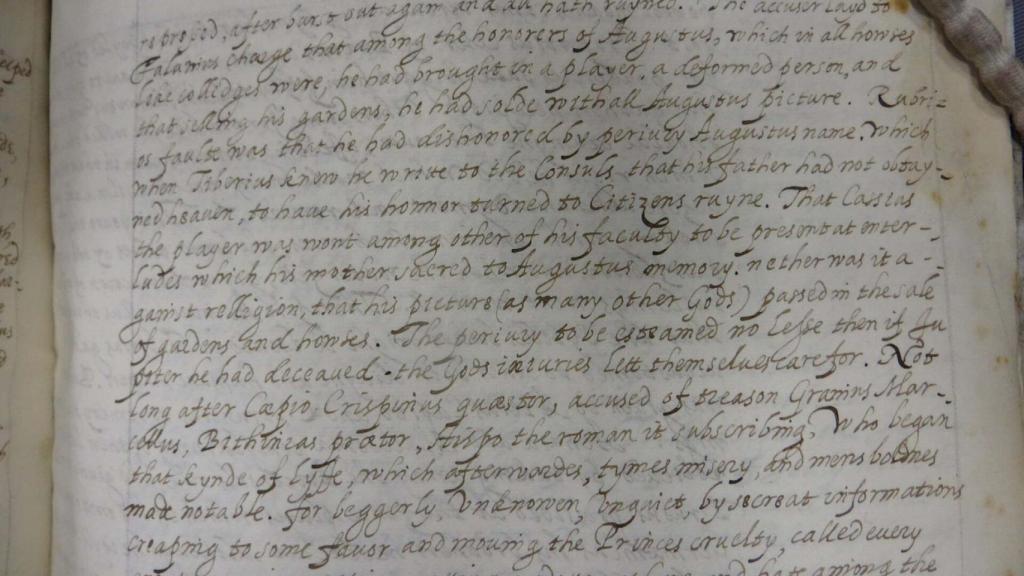 repressed, after burst out again and all hath rayned. The accuser layd to
Falanius charge that among the honorers of Augustus, which in all howses
like colledges were, he had brought in a player, a deformed person, and
that selling his gardens, he had solde withall Augustus picture. Rubri-
os faulte was that he had dishonored by periury Augustus name. Which
when Tiberius knew he wrote to the Consuls that his father had not obtay-
ned heaven, to have his honnor turned to Citizens ruyne. That Cassius
the player was wont among other of his faculty to be present at enter-
ludes which his mother sacred to Augustus memory. nether was it a-
gainst relligion, that his picture (as many other Gods) passed in the sale
of gardens and howses. The periury to be esteamed no lesse then if Ju
piter he had deceaved. the Gods iniuries lett themselves care for. Not
long after Cæpio Crispinus quæstor, accused of treason Granius Mar-
cellus, Bithineas prætor, Hispo the roman it subscribing, Who began
that kynde of lyffe, which afterwardes, tymes misery, and mens boldnes
made notable. for beggerly, unknowen, unquiet, by secreat informations
creaping to some favor and moving the Princes cruelty, called every
and among the